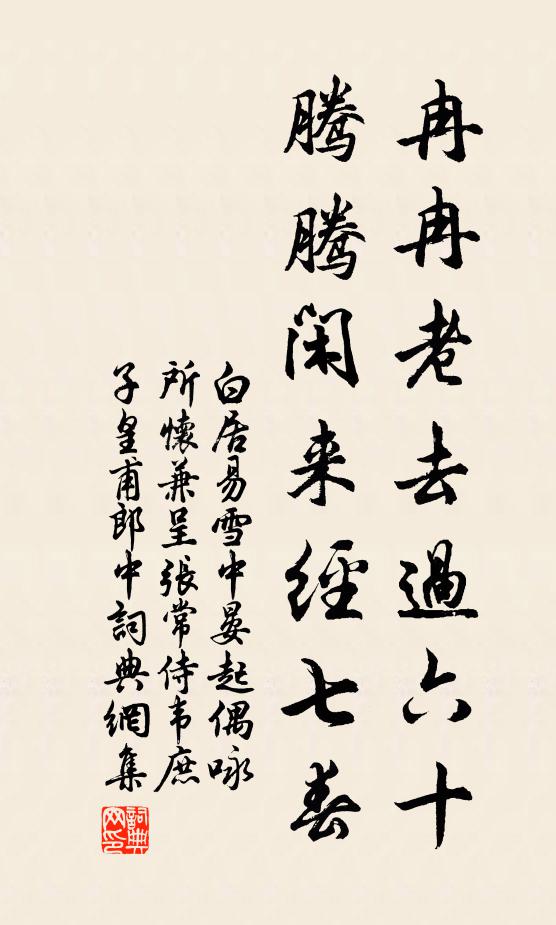 冉冉老去過六十
騰騰閑來經七春
白居易雪中晏起偶咏
所懷兼呈張常侍韦庶
子皇甫郎中詞典網集
詞典
网印